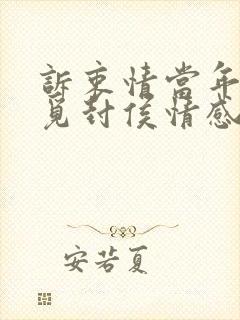 訴衷情當年
覓封侯情感
安若夏